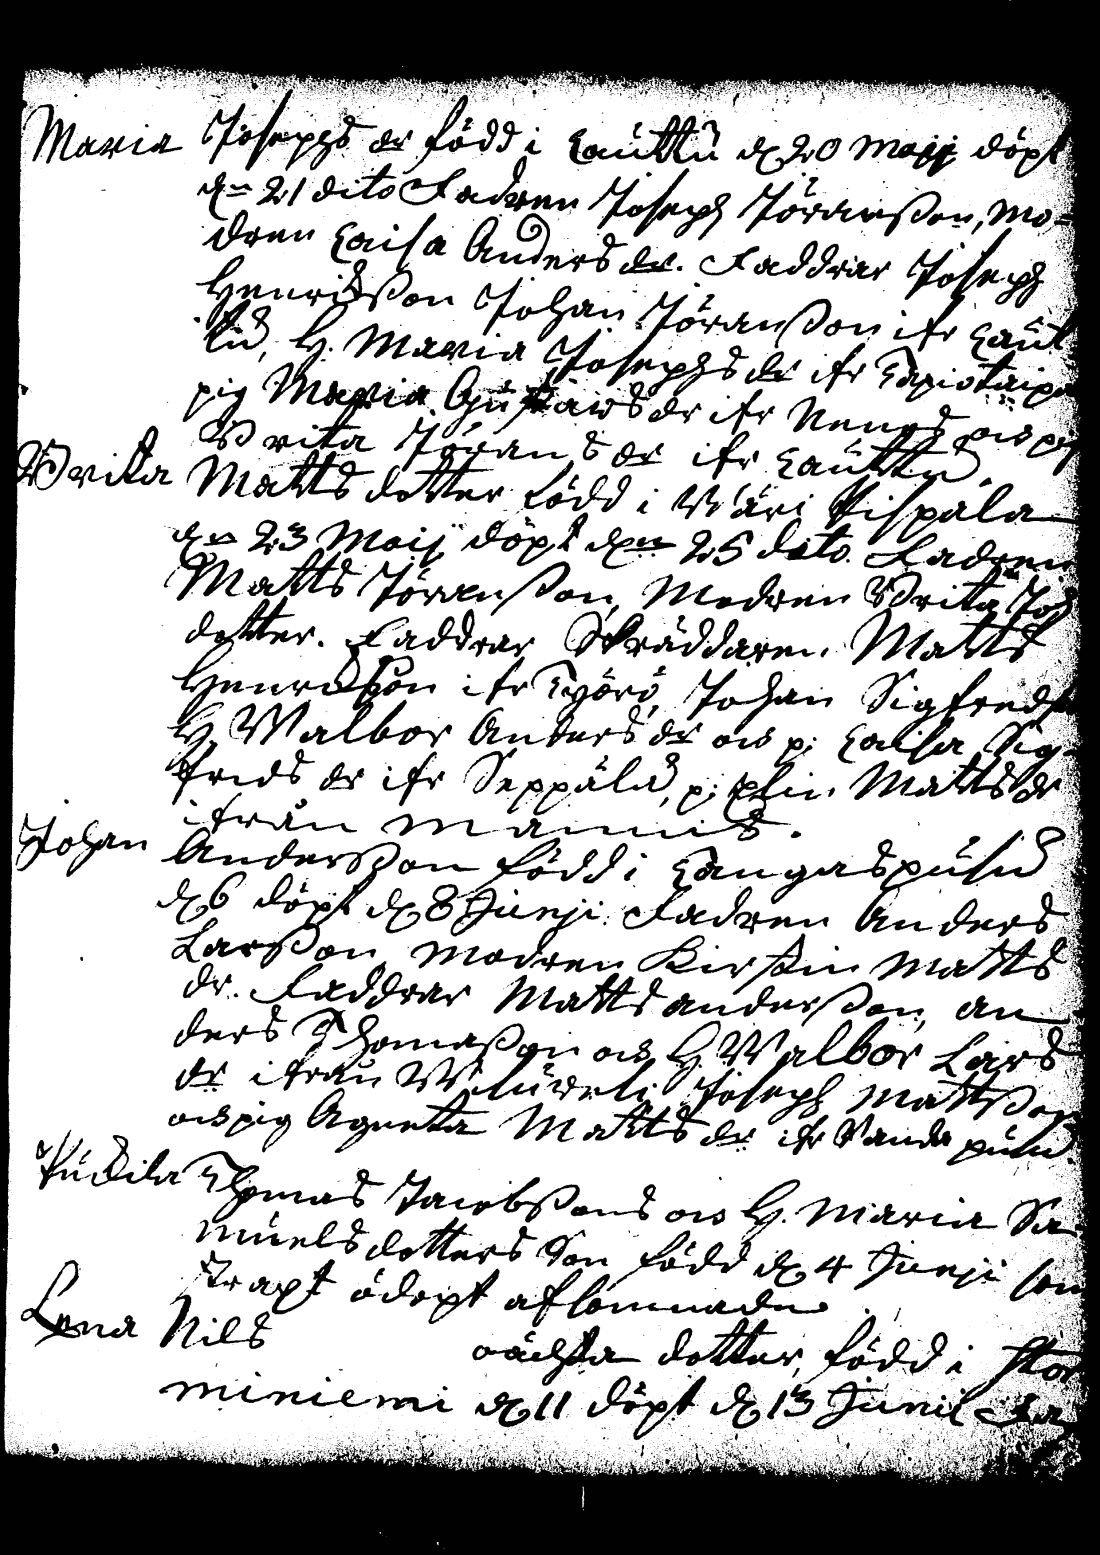 Maria Josephs dr född i Kauttu d 20 Maji döpt
dn 21 dito Fadren Joseph Jöransson, Mo=
dren Caisa Anders dr. Faddrar Joseph
Henriksson Johan Jöransson ifr Kaut
tu, H. Maria Josephs dr ifr
pig Maria Gustavs dr ifr och pig
Brita Jörans dr ifr Kauttu
Brita Matts dotter född i Wäri Pispala
dn 23 Maij döpt den 25 dito. Fadren
Matts Jöransson, Modren Brita Joh
dotter. Faddrar Skräddaren Matts
Henriksson ifr Kyörö, Johan Sigfreds
H. Walbor Anders dr och p: Caisa Sig=
frids dr ifr Seppälä, p: Matts dr
ifrån Mannis.
Johan Andersson född i Kangaspusu
d 6 döpt d 8 Junji. Fadren Anders
Larsson Modren Kirstin Matts
dr. Faddrar Matts andersson, an
ders Thomasson och H. Walbor Lars
dr ifrån Joseph Mattsson
och pig Agneta Matts dr ifr
Thomas Jacobssons och H. Maria Sa=
muels dotters Son född d 4 Junji som
straxt ödöpt aflomnade
Lena Nils ächta dotter, född i Stor
miniemi d 11 döpt d 13 Junii Fa